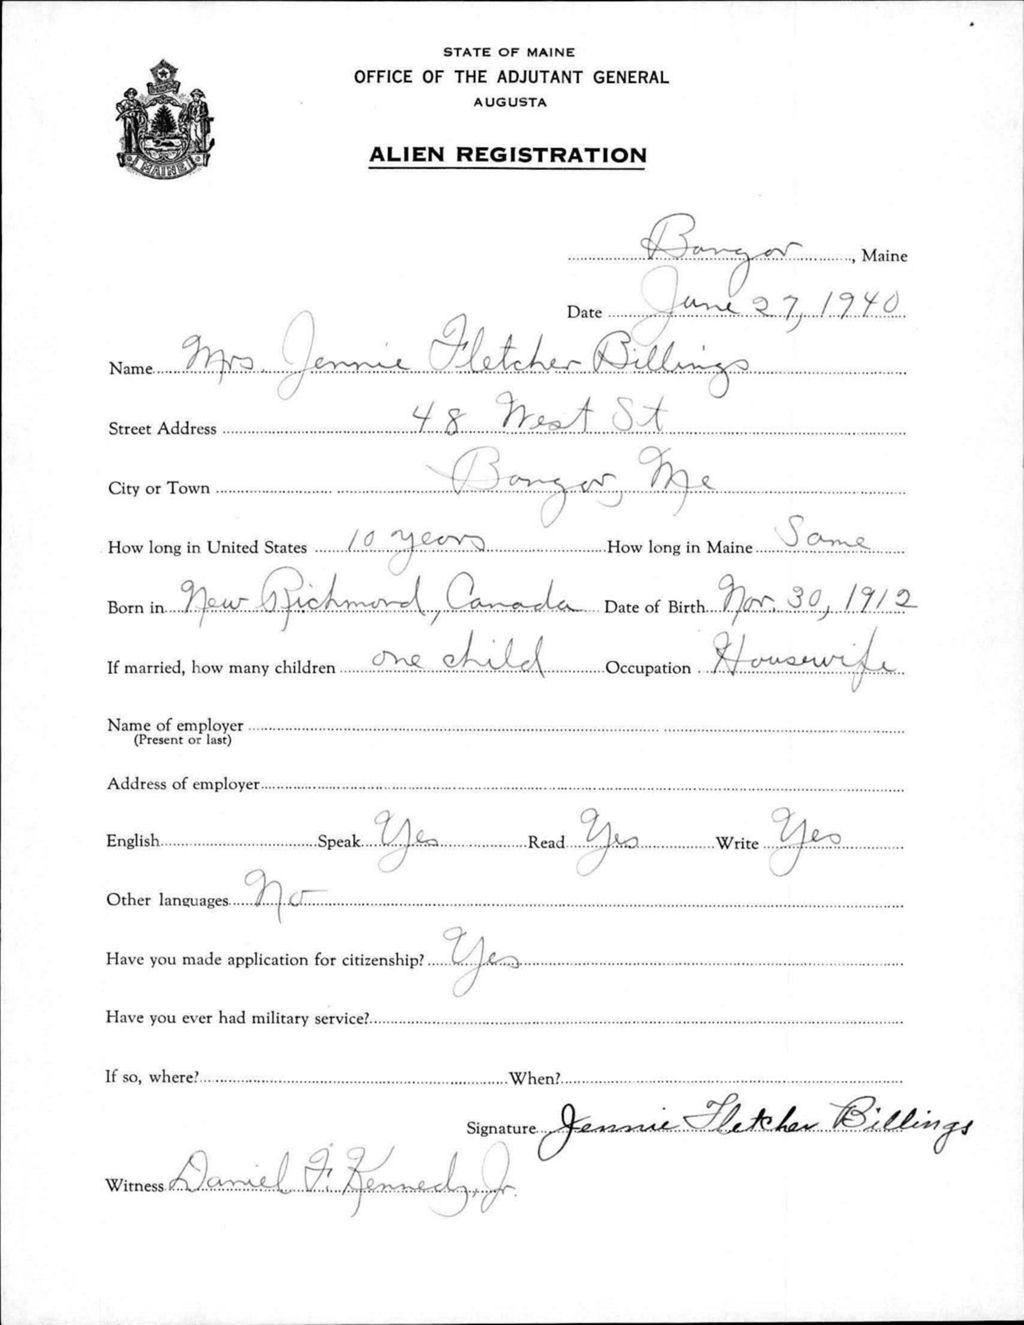 STATE OF MAINE
OFFICE OF THE ADJUTANT GENERAL
AUGUSTA
ALIEN REGISTRATION
MAINE
Bangor, Maine
Date June 27, 1940
Name Mrs. Jennie Fletcher Billings
Street Address 48 West St
City or Town Bangor, Me
How long in United States 10 years How long in Maine Same
Born in New Richmond, Canada Date of Birth Nov. 30, 1912
If married, how many children one child Occupation Housewife
Name of employer
(Present or last)
Address of employer
English Speak Yes Read Yes Write Yes
Other languages No
Have you made application for citizenship? Yes
Have you ever had military service?
If so, where? When?
Signature Jennie Fletcher Billings
Witness Daniel F. Kennedy, Jr.